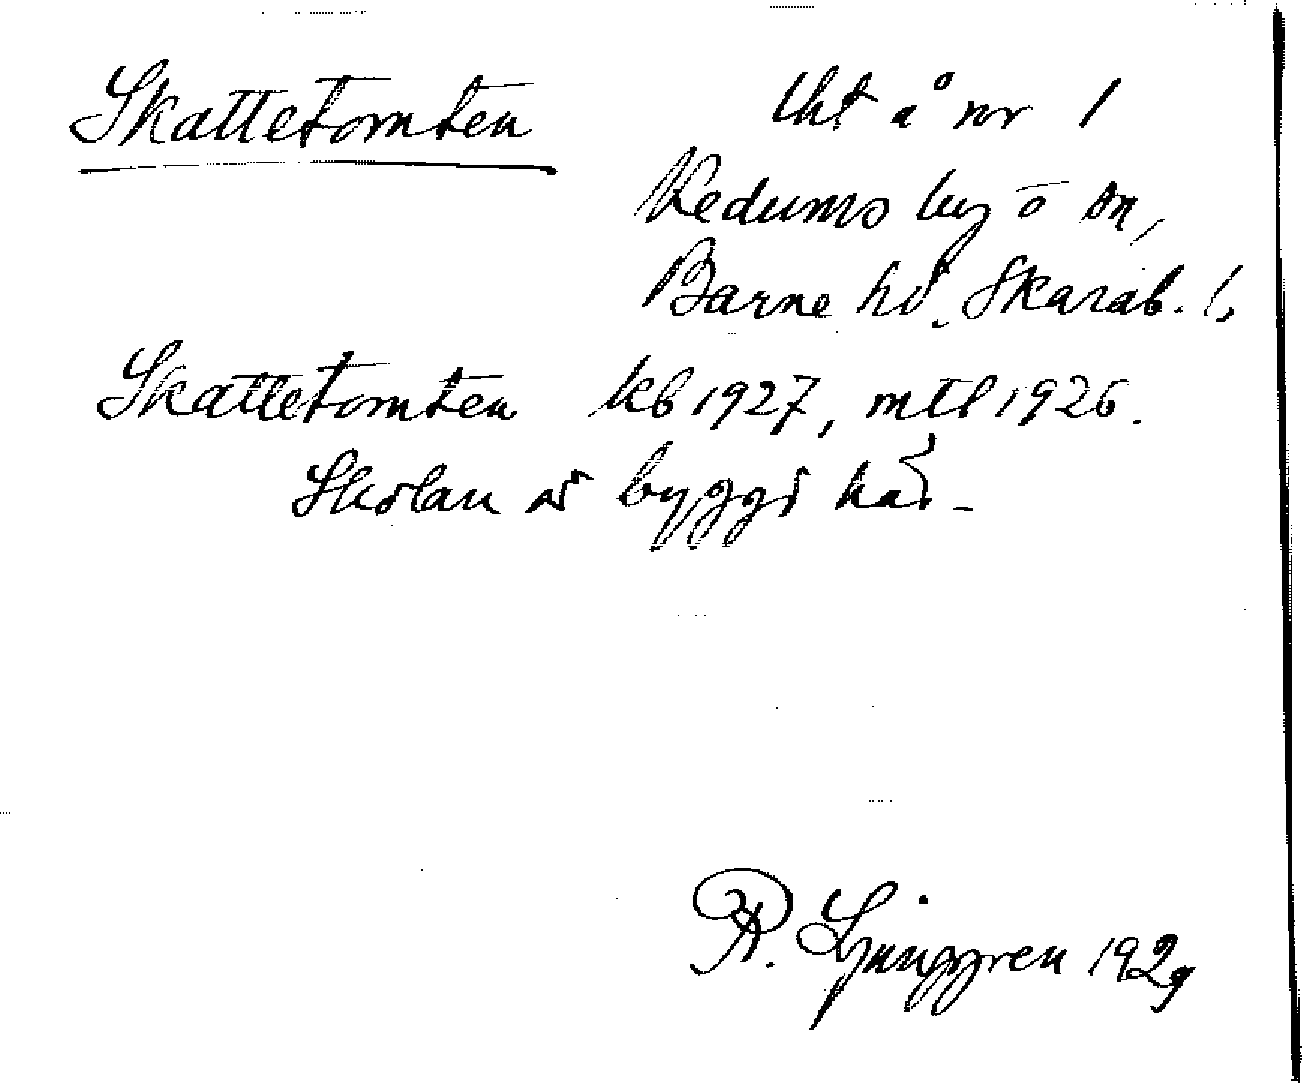 Skattetomten
lht å nr 1
Kedums by o sn,
Barne hd. Skarab. l.
Skattetomten kb 1927, mtl 1926.
Skolan är byggd här.
R. Ljunggren 1929